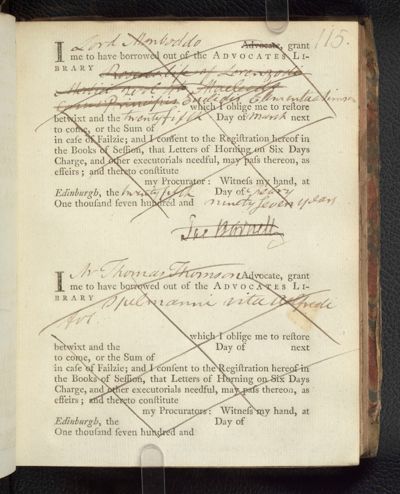 115.
I Lord Monboddo Advocate, grant
me to have borrowed out of the ADVOCATES LI-
BRARY Roscoe's life of Lorenzo di
which I oblige me to restore
betwixt and the twenty fifth Day of March next
to come, or the Sum of
in case of Failzie; and I consent to the Registration hereof in
the Books of Session, that Letters of Horning on Six Days
Charge, and other executorials needful, may pass thereon, as
effeirs; and thereto constitute
my Procurator: Witness my hand, at
Edinburgh, the twenty fifth Day of
One thousand seven hundred and ninety seven years
Jas Burnett
I Mr Thomas Thomson Advocate, grant
me to have borrowed out of the ADVOCATES LI-
BRARY Spelmanni vita Alfredi
which I oblige me to restore
betwixt and the Day of next
to come, or the Sum of
in case of Failzie; and I consent to the Registration hereof in
the Books of Session, that Letters of Horning on Six Days
Charge, and other executorials needful, may pass thereon, as
effeirs; and thereto constitute
my Procurators: Witness my hand, at
Edinburgh, the Day of
One thousand seven hundred and